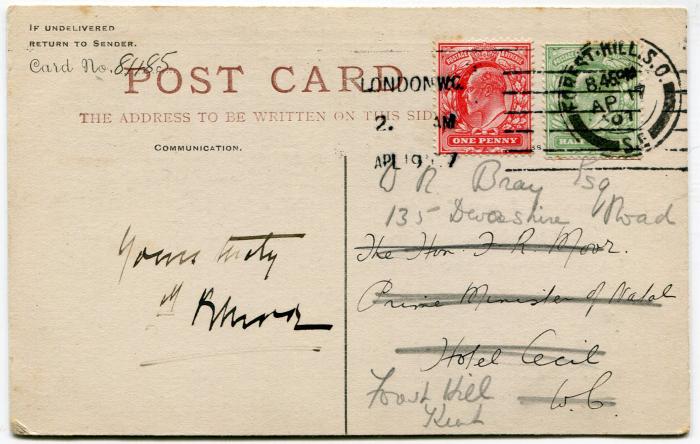 IF UNDELIVERED
RETURN TO SENDER.
Card No. 8485
POST CARD
THE ADDRESS TO BE WRITTEN ON THIS SID
COMMUNICATION.
LONDON W.C.
2. AM
APL 19 7
POSTAGE REVENUE
ONE PENNY
HAL
FOREST-HILL.S.O.
8.45PM
AP 17
07
S.E.
Yours truly
D R Bray Esq
135 Devonshire Road
The Hon. F R Moor.
Prime Minister of Natal
Hotel Cecil
W.C.
Forest Hill
Kent